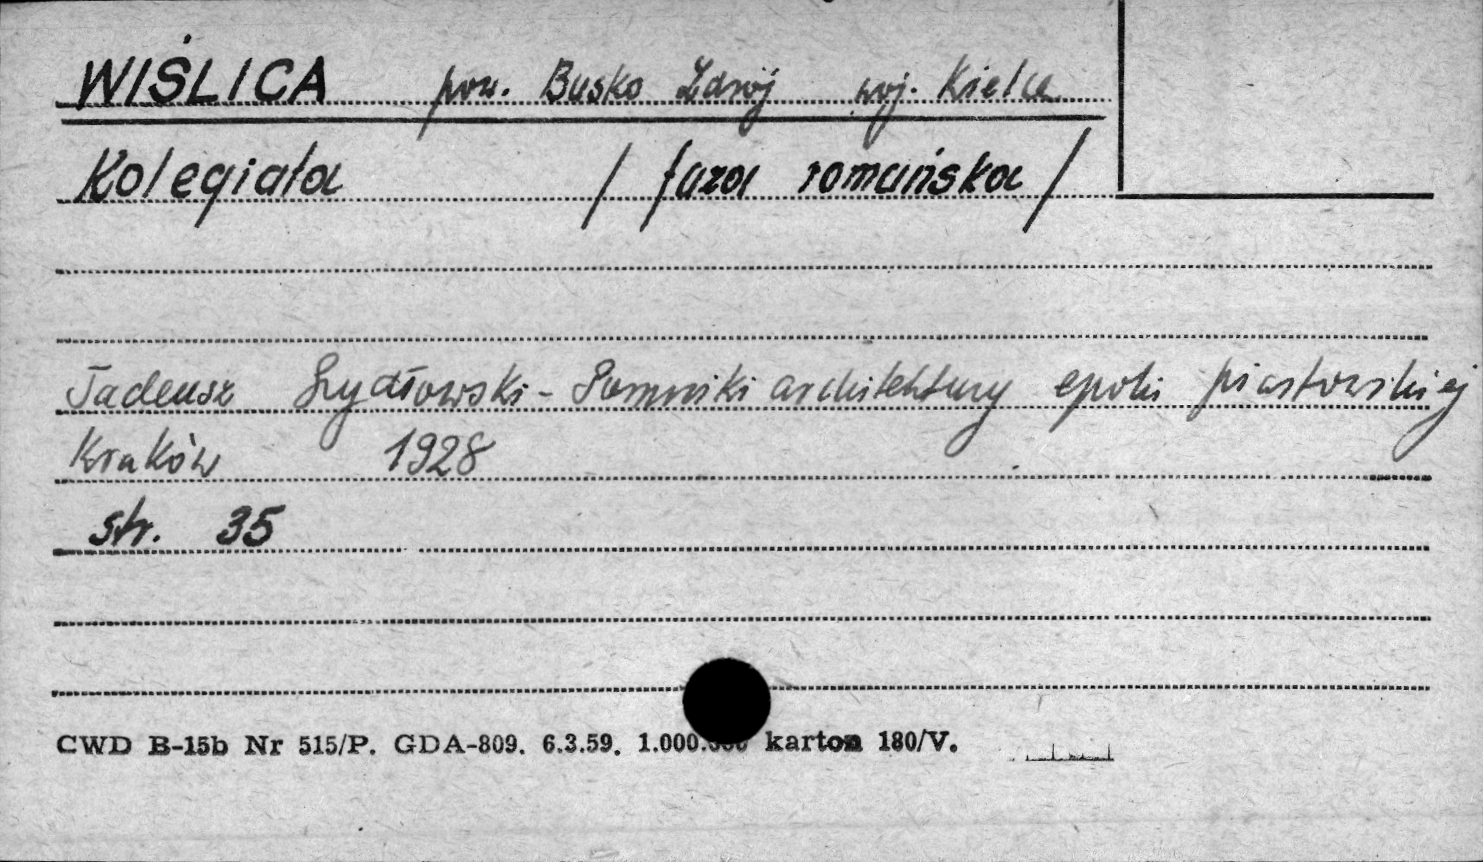 WIŚLICA pow. Busko Zdrój woj. Kielce
Kolegiata / faza romańska /
Tadeusz Szydłowski - Pomniki architektury epoki piastowskiej
Kraków 1928
str. 35
CWD B-15b Nr 515/P. GDA-809. 6.3.59. 1.000.000 karton 180/V.